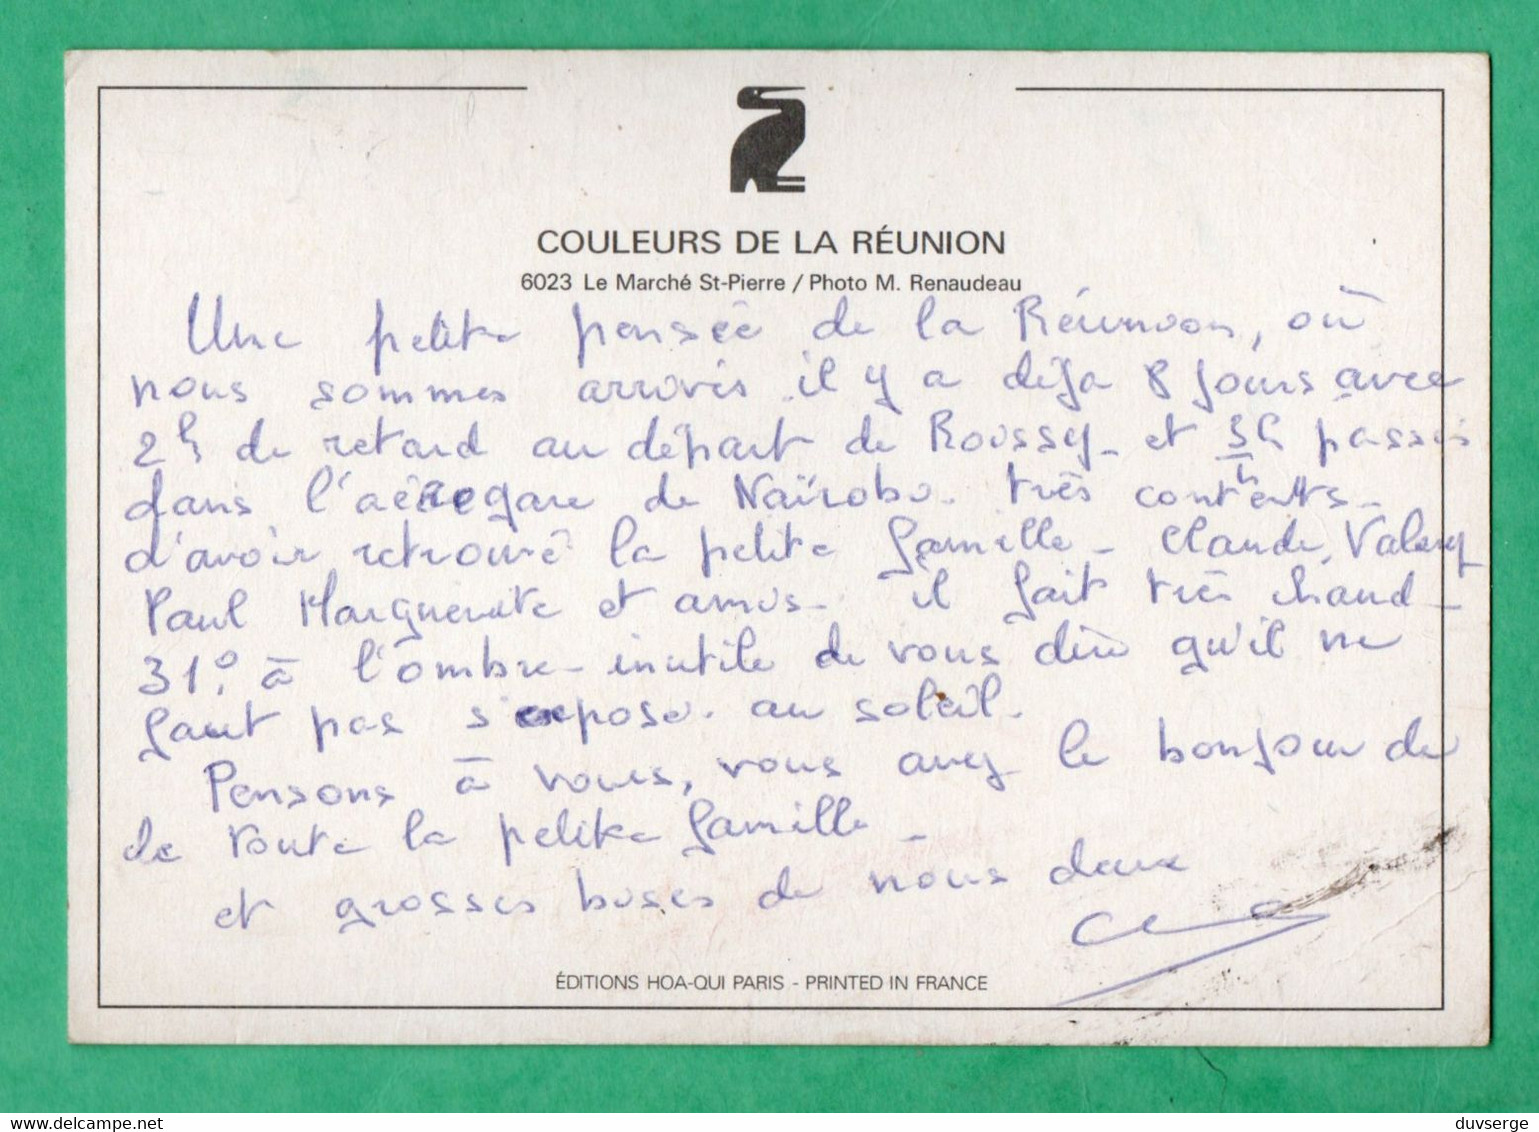 COULEURS DE LA RÉUNION
6023 Le Marché St-Pierre / Photo M. Renaudeau
Une petite pensée de la Réunion, où
nous sommes arrivés il y a déja 8 jours avec
2h de retard au départ de Roissy - et 3h passés
dans l'aérogare de Naïrobi. très contents
d'avoir retrouvé la petite famille - Claude, Valery
Paul Marguerite et amis - il fait très chaud -
31° à l'ombre - inutile de vous dire qu'il ne
faut pas s'exposer au soleil.
Pensons à vous, vous avez le bonjour de
de toute la petite famille -
et grosses bises de nous deux
ÉDITIONS HOA-QUI PARIS - PRINTED IN FRANCE
delcampe.net
duvserge